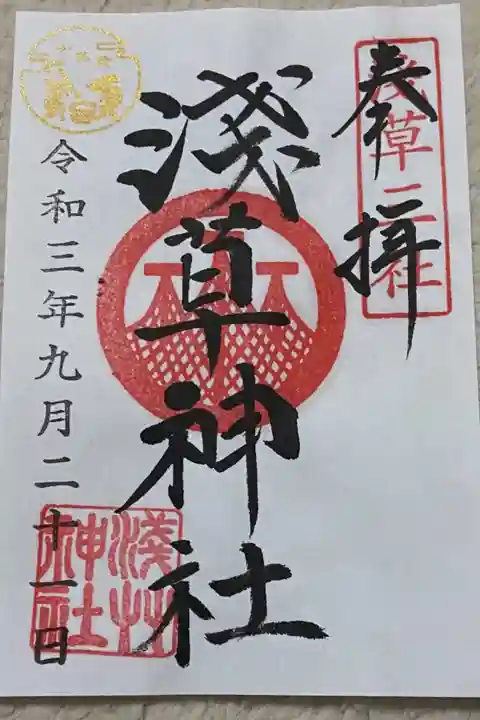 奉拝
淺草三社
淺草神社
令和三年九月二十一日
淺草神社